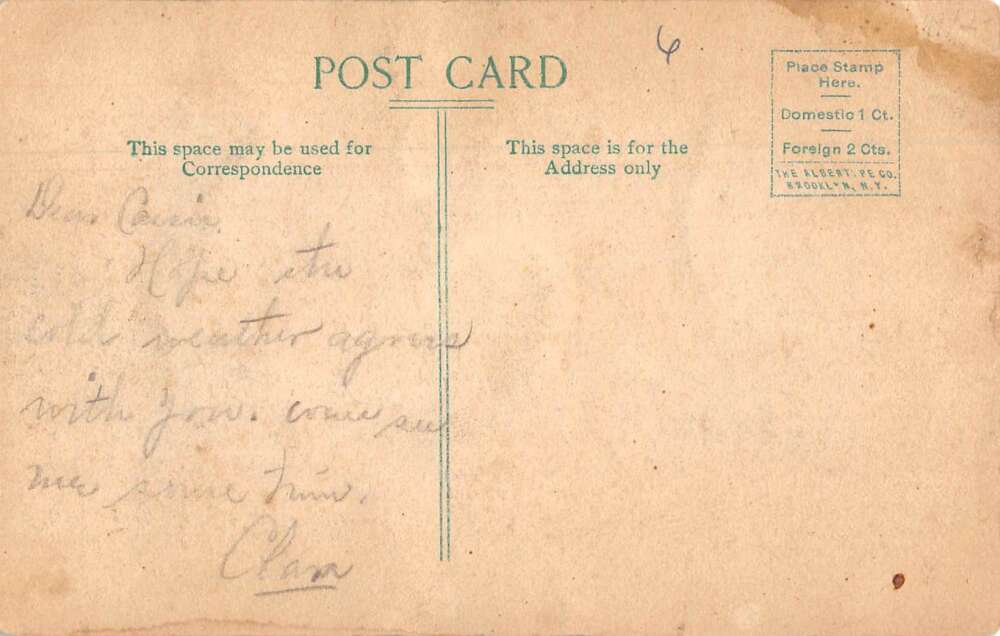 6
POST CARD
Place Stamp
Here.
Domestic 1 Ct.
Foreign 2 Cts.
THE ALBERTYPE CO.
BROOKLYN, N.Y.
This space may be used for
Correspondence
This space is for the
Address only
Dear
Hope the
cold weather agrees
with you. come see
me some time.
Clara